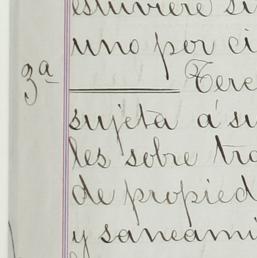 estuviere si
uno por ci
3a
Terc
sujeta á su
les sobre tra
de propied
y saneami